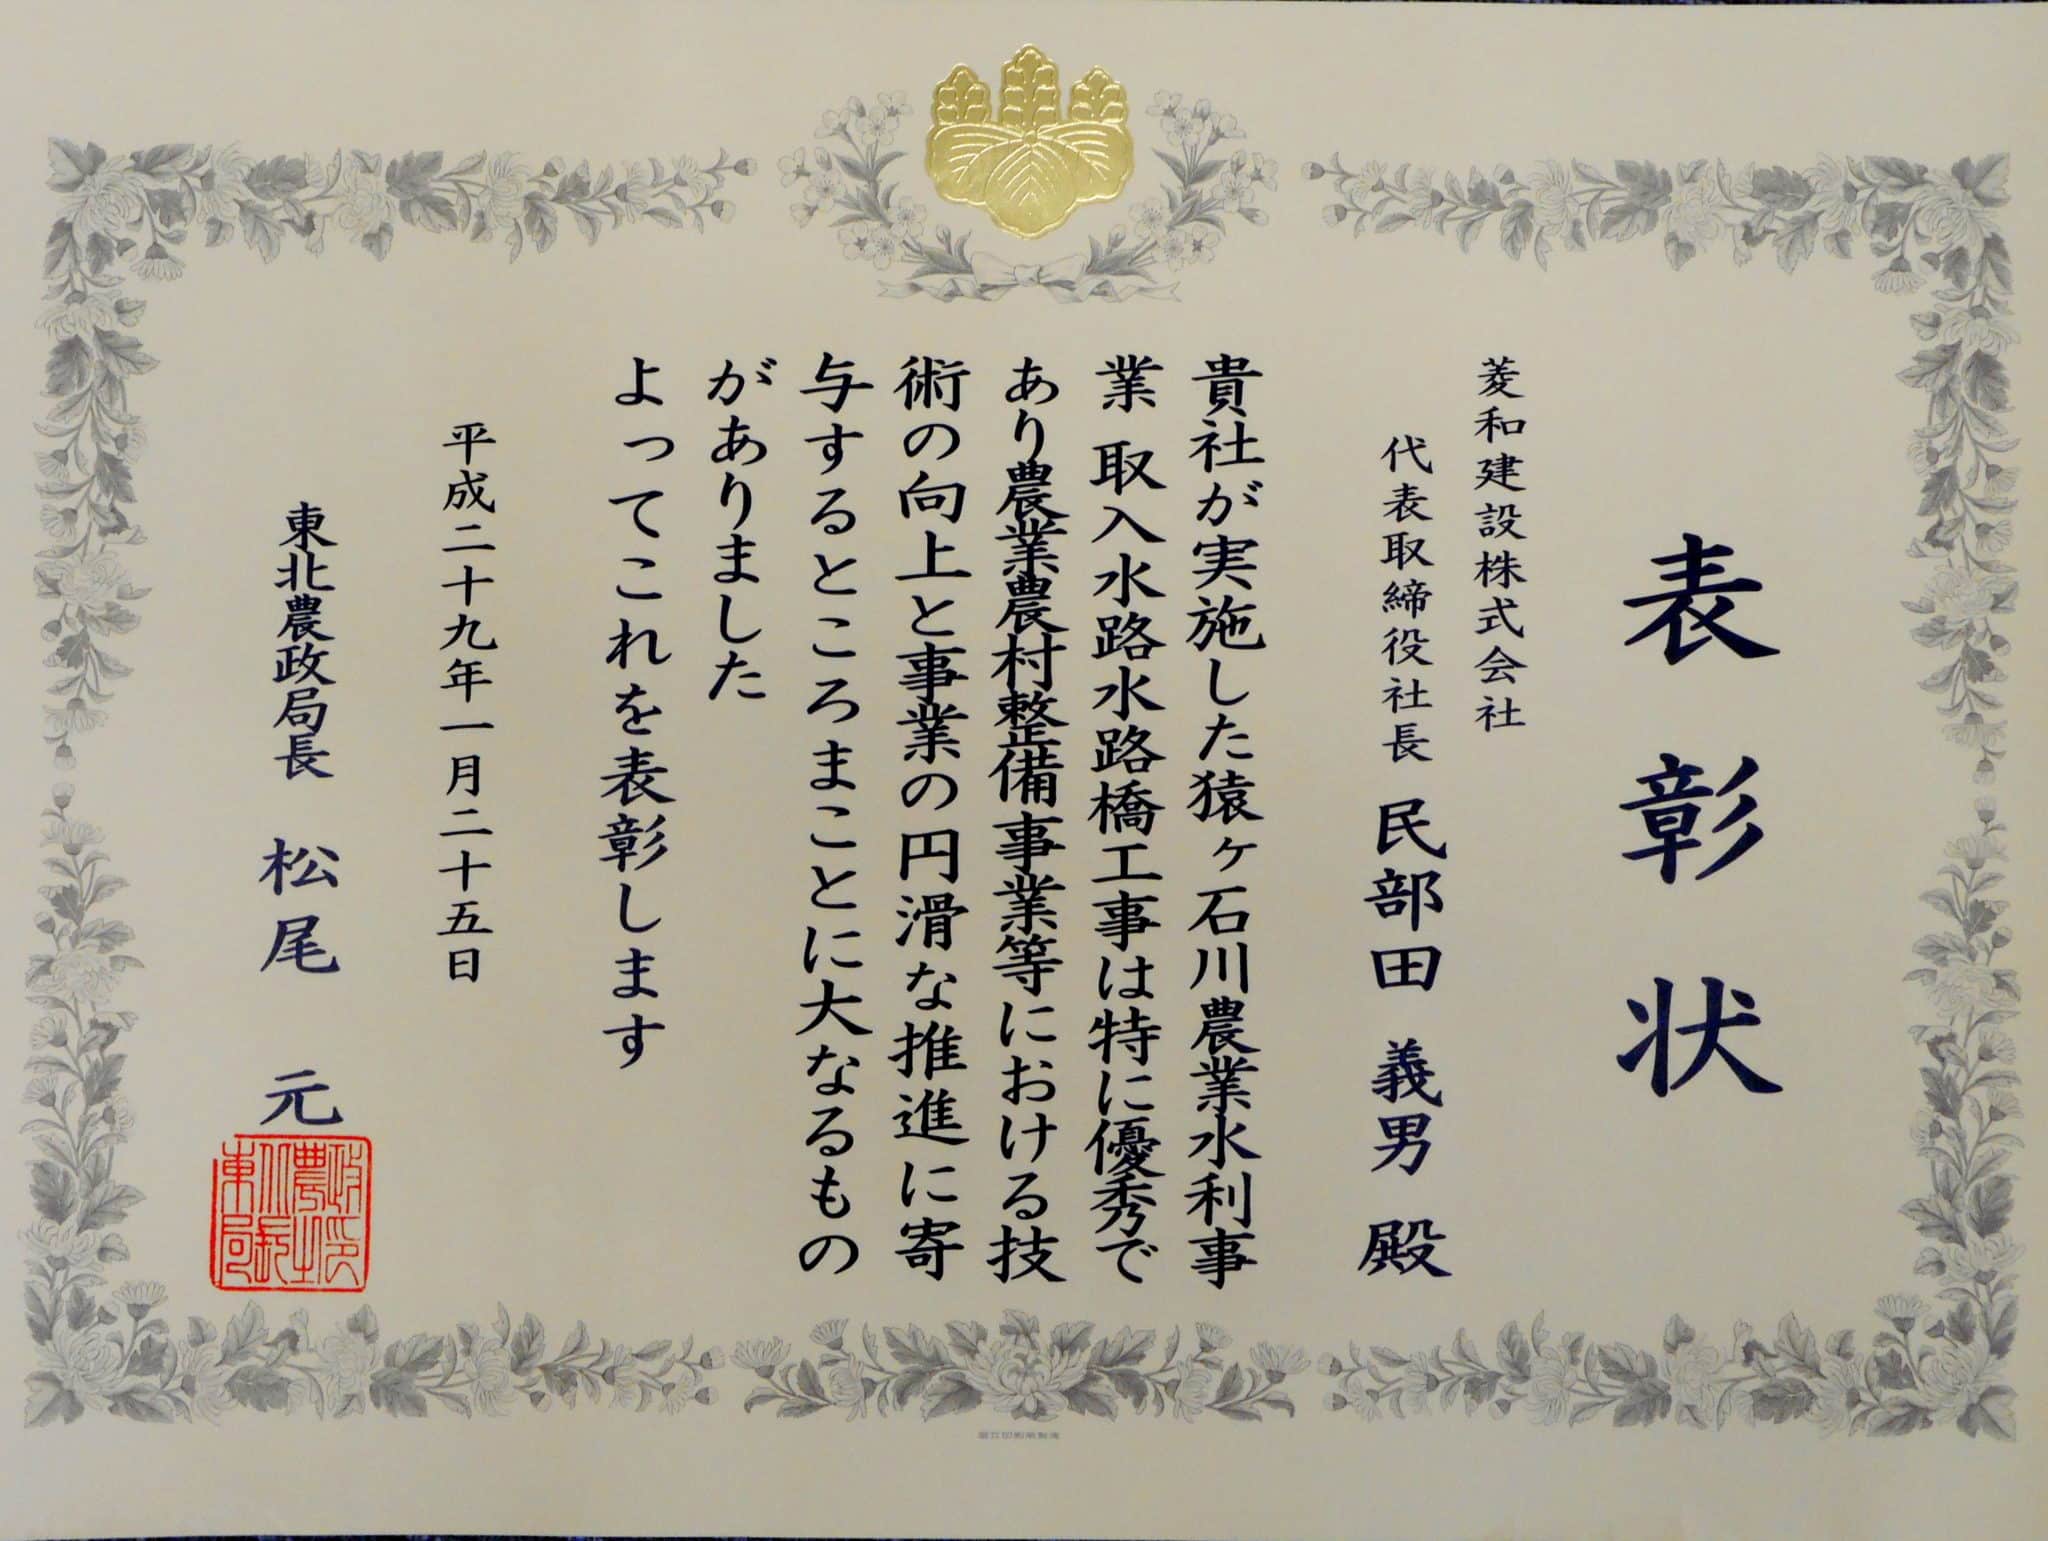 表彰状
菱和建設株式会社
代表取締役社長 民部田 義男 殿
貴社が実施した猿ヶ石川農業水利事
業 取入水路水路橋工事は特に優秀で
あり農業農村整備事業等における技
術の向上と事業の円滑な推進に寄
与するところまことに大なるもの
がありました
よってこれを表彰します
平成二十九年一月二十五日
東北農政局長 松尾 元